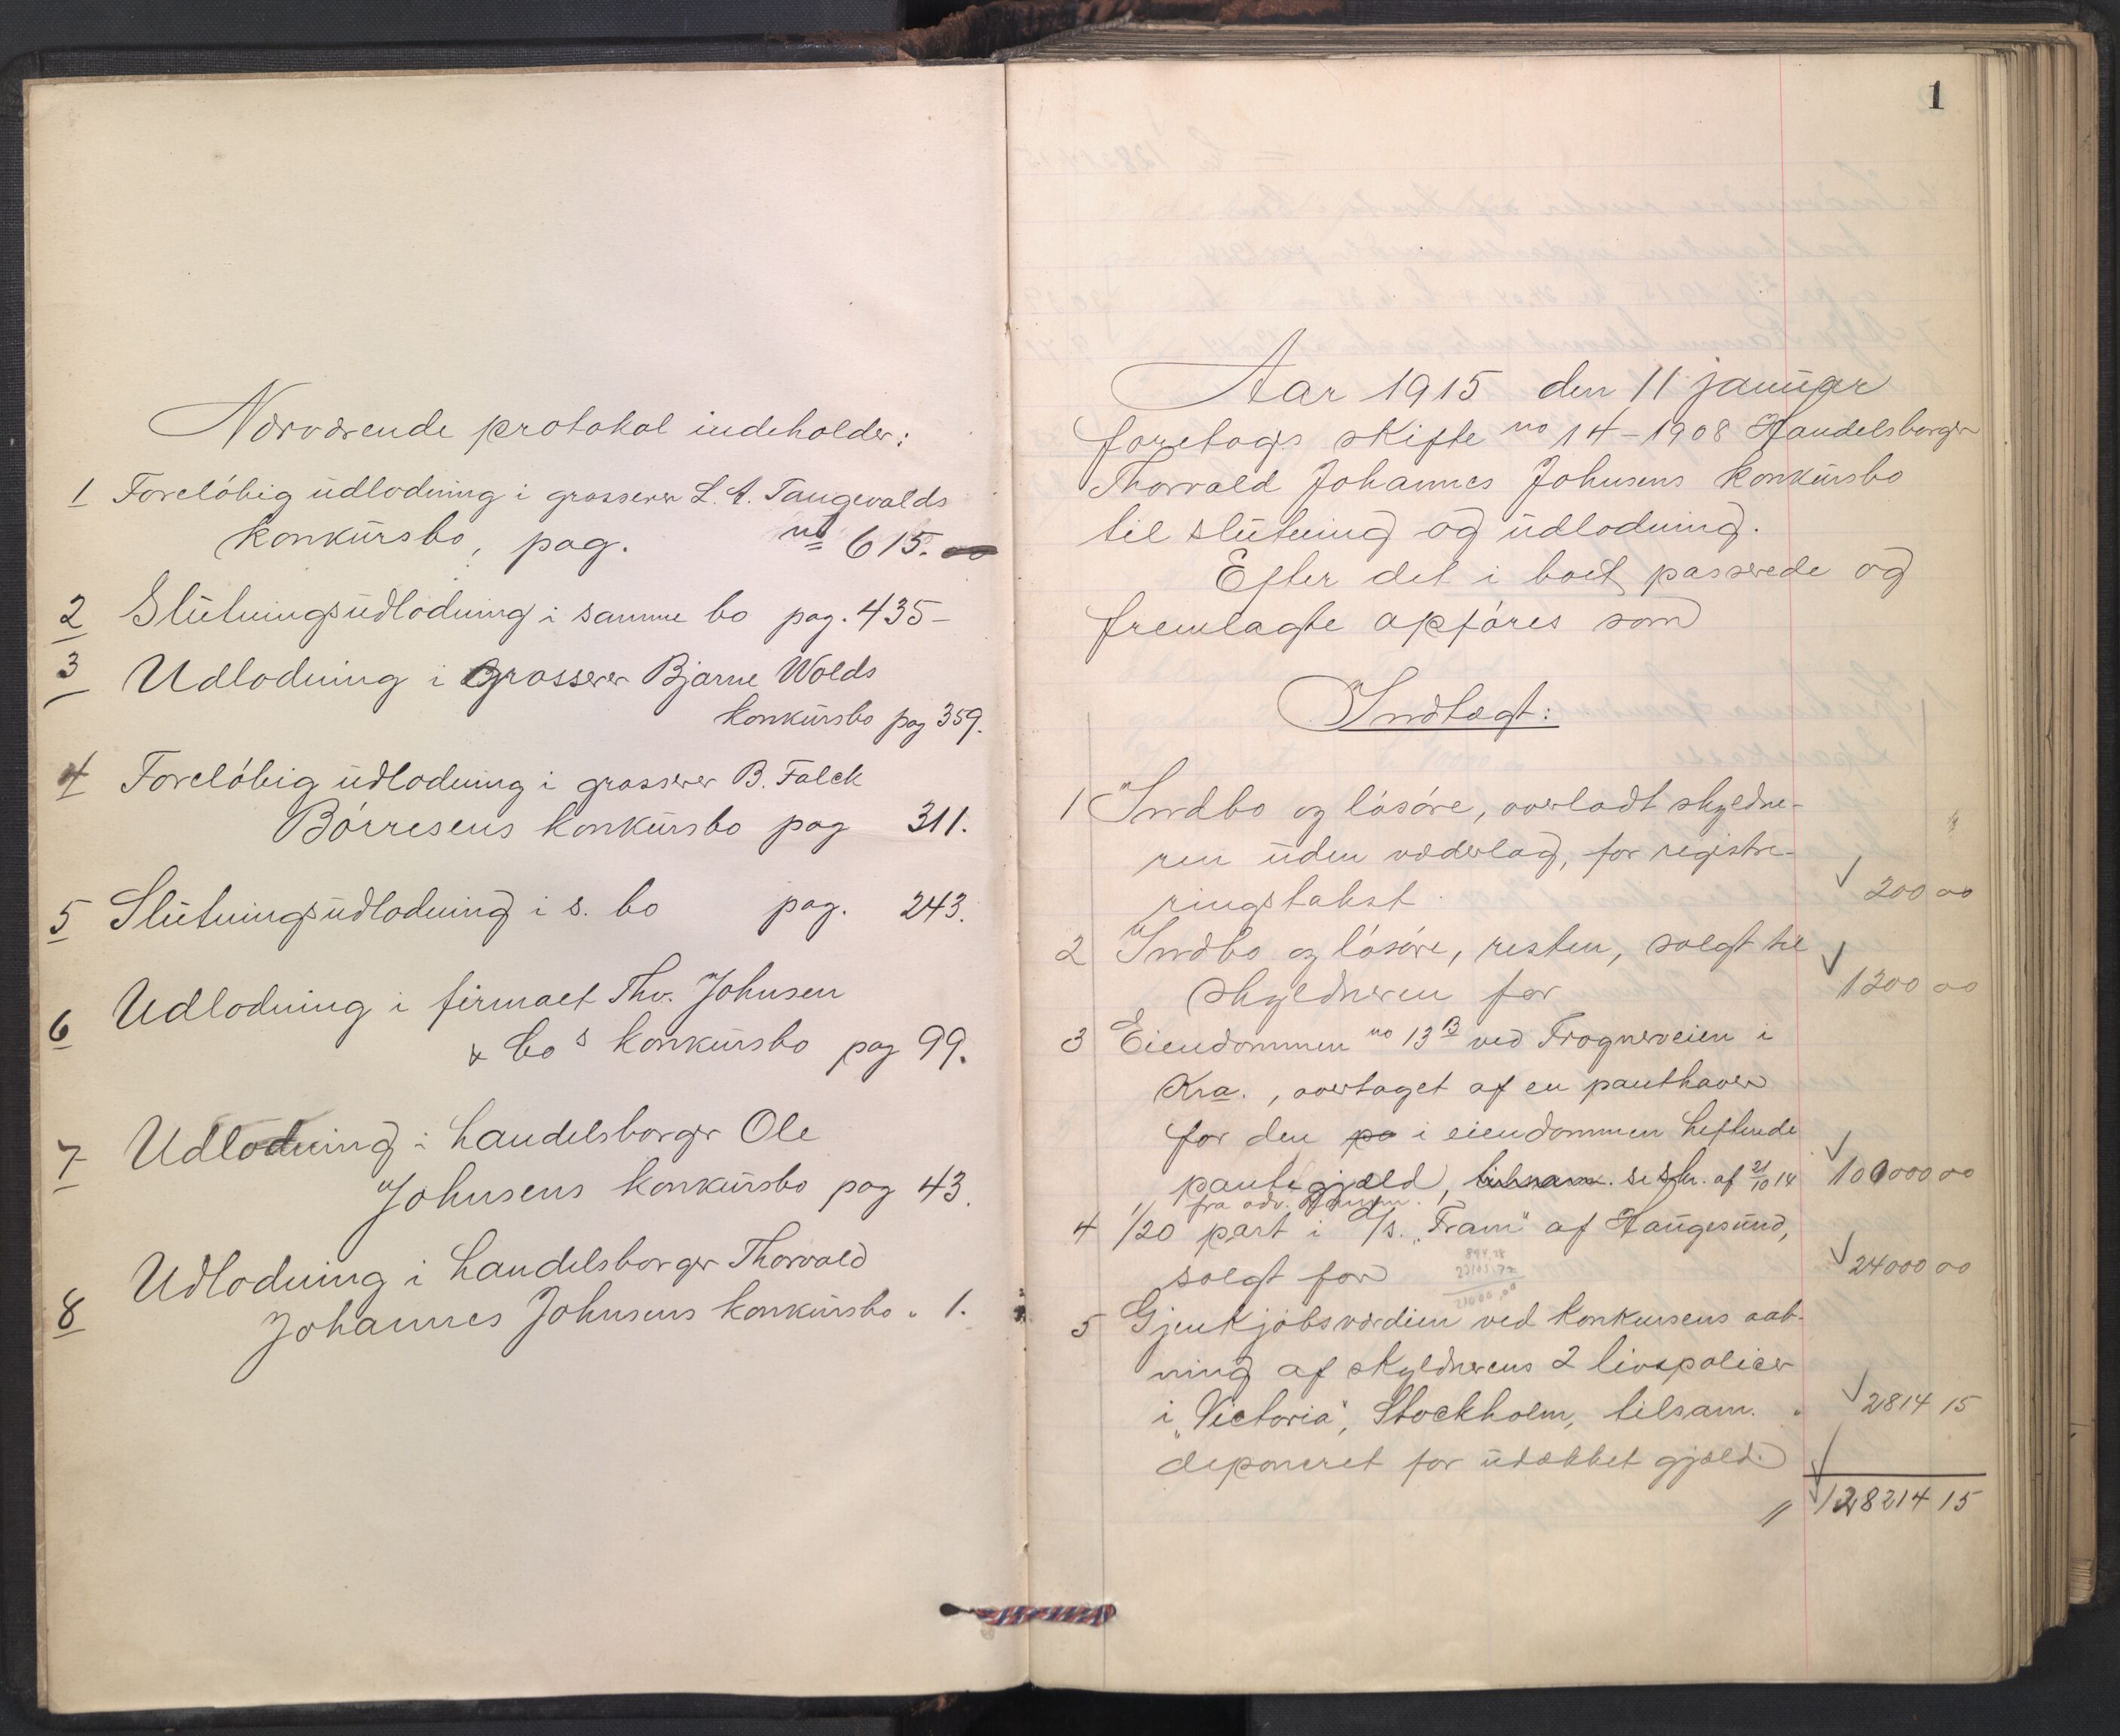 Nærværende protokol indeholder:
1 Foreløbig udlodning i grosserer L. A. Tangevalds
konkursbo, pag. no 615.
2 Slutningsudlodning i samme bo pag. 435 –
3 Udlodning i Grosserer Bjarne Wolds
konkursbo pag 359.
4 Foreløbig udlodning i grosserer B. Falck
Börresens konkursbo pag 311.
5 Slutningsudlodning i s. bo pag. 243.
6 Udlodning i firmaet Thv. Johnsen
& Co s konkursbo pag 99.
7 Udlodning i handelsborger Ole
Johnsens konkursbo pag 43.
8 Udlodning i handelsborger Thorvald
Johannes Johnsens konkursbo " 1.
1
Aar 1915 den 11 januar
foretoges skifte no 14 – 1908 Handelsborger
Thorvald Johannes Johnsens konkursbo
til slutning og udlodning.
Efter det i boet passerede og
fremlagte opføres som
Indtægt:
1 Indbo og løsøre, overladt skyldne-
ren uden vederlag, for registre-
ringstakst. 200 00
2 Indbo og løsøre, resten, solgt til
skyldneren for 1200 00
3 Eiendommen no 13 B ved Frognerveien i
Kra., overtaget af en panthaver
for den pa i eiendommen heftende
pantegjæld, se skr. af 21/10 14 100000 00
fra adv.
4 1/20 part i A/s. "Fram" af Haugesund,
solgt for 24000 00
5 Gjenkjøbsværdien ved konkursens aab-
ning af skyldnerens 2 livspolicer
i "Victoria", Stockholm, tilsam. " 2814 15
deponeret for udækket gjæld.
128214 15